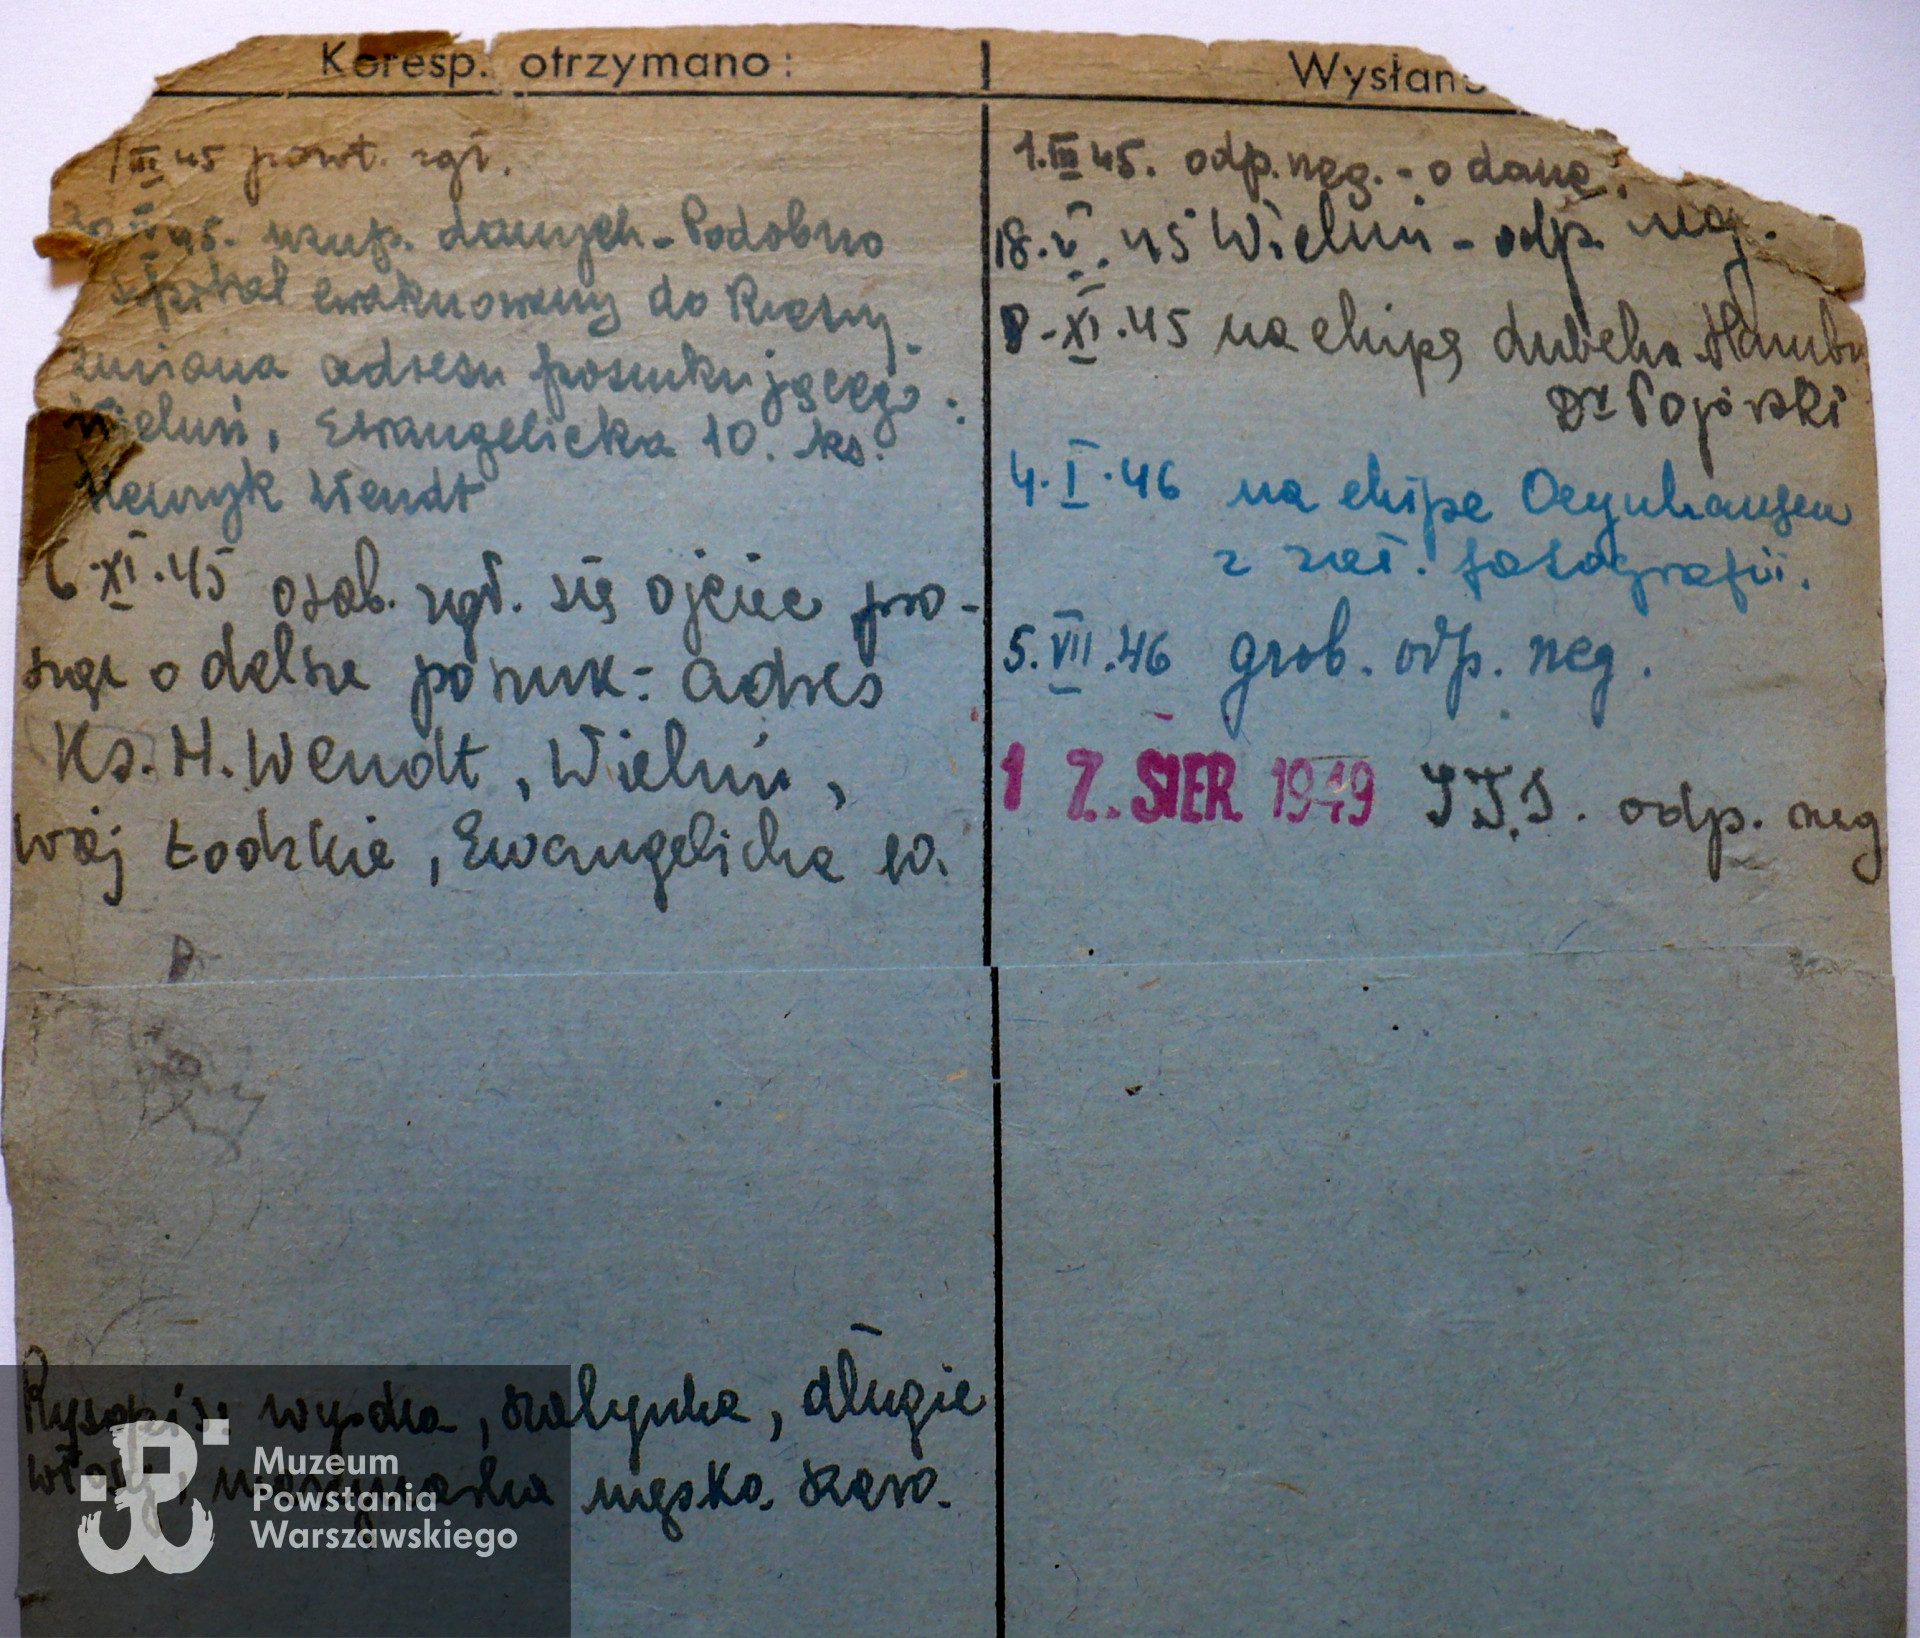 Koresp. otrzymano:
1 III 45 powt. zgł.
IV 45. uzup. danych - Podobno
szpital ewakuowany do Rzeszy.
zmiana adresu poszukującego:
Wieluń, Ewangelicka 10. ks.
Henryk Wendt
6.XI.45 osob. zgł. się ojciec pro-
szący o dalsze poszuk: adres
Ks. H. Wendt, Wieluń,
woj Łódzkie, Ewangelicka 10.
Rysopis: wysoka, szczupła, długie
włosy, męsko.
Wysłano
1.III 45. odp. neg. - o dane.
18.V.45 Wieluń - odp. neg.
8-XI.45 na ekipę Lubeka Hambu
Dr Pogórski
4.I.46 na ekipę Oeynhausen
z zał. fotografii.
5.VII.46 grob. odp. neg.
1 7. SIER 1949 I.T.S. odp. neg
Muzeum
Powstania
Warszawskiego